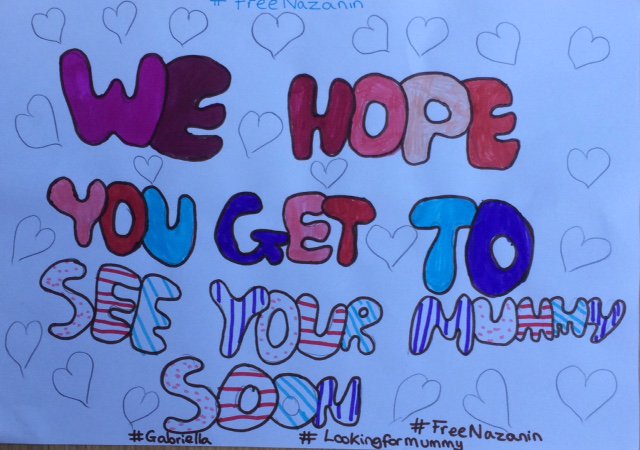 #FreeNazanin
WE HOPE
YOU GET TO
SEE YOUR MUMMY
SOON
#Gabriella # Lookingformummy #FreeNazanin